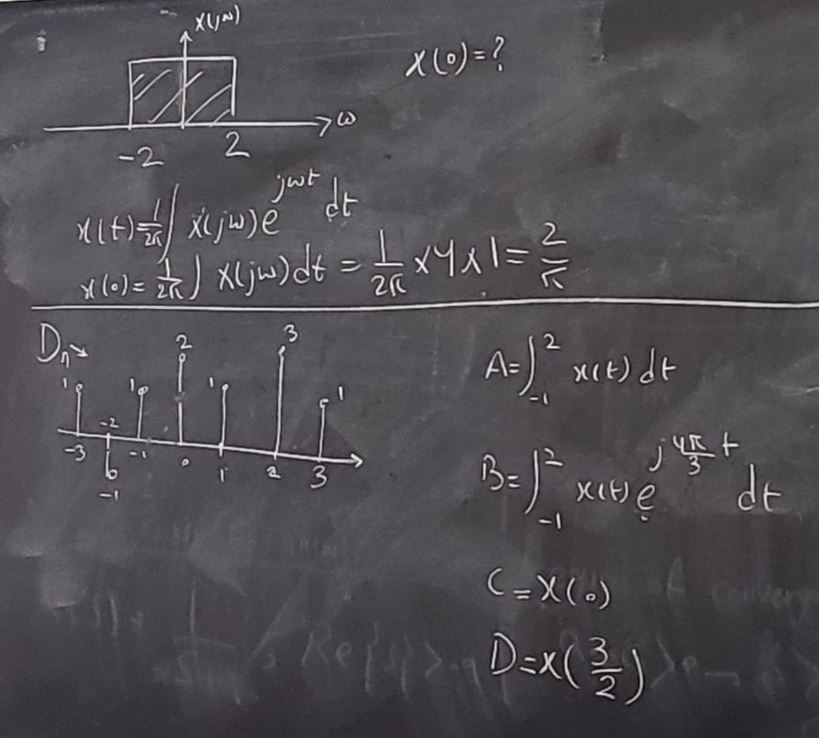 X(jω)
x(0)=?
ω
-2 2
x(t)=1/2π ∫ X(jω)e^{jωt} dt
x(0)=1/2π ∫ X(jω)dt = 1/2π ×4×1= 2/π
Dₙ
1 -1 1 2 1 3 1
-3 -2 -1 0 1 2 3
A=∫_{-1}^{2} x(t) dt
B=∫_{-1}^{2} x(t) e^{j 4π/3 t} dt
C=x(0)
D=x(3/2)